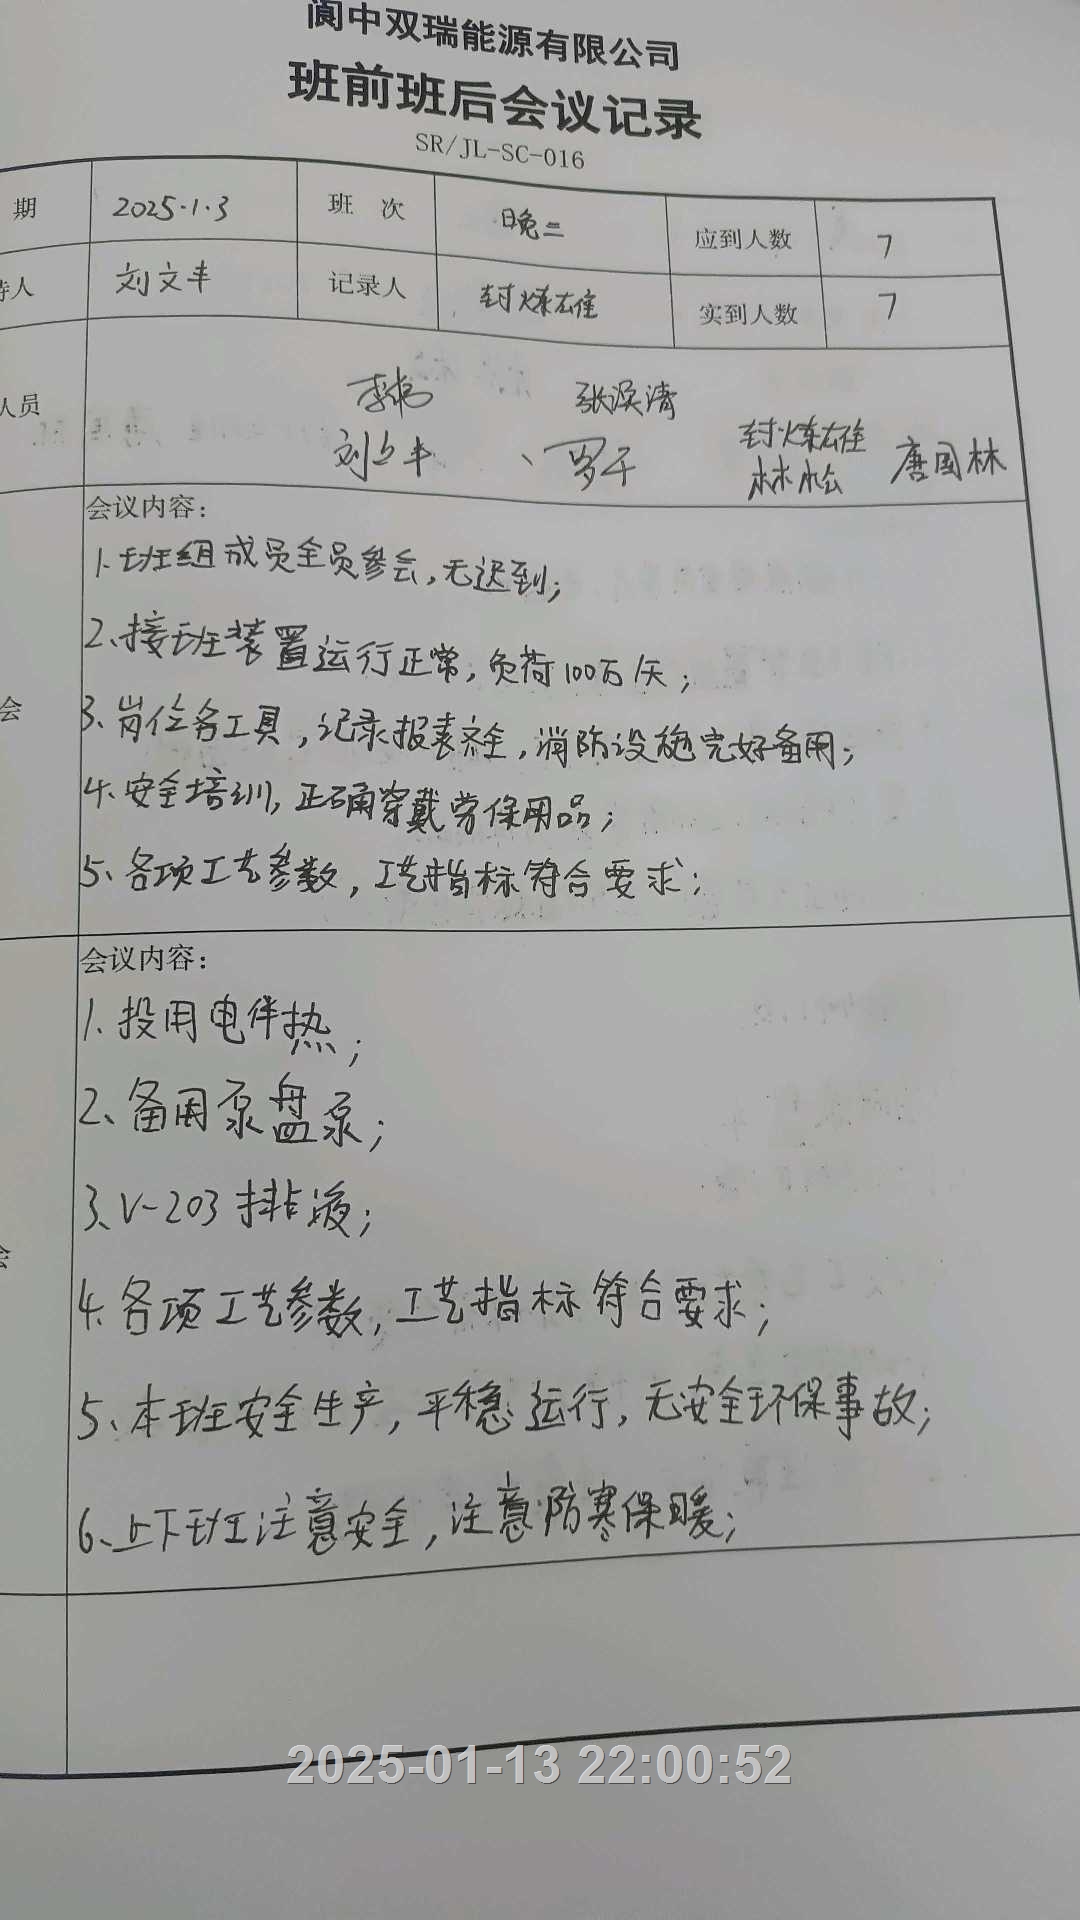 阆中双瑞能源有限公司
班前班后会议记录
SR/JL-SC-016
期 2025.1.3 班 次 晚二 应到人数 7
持人 刘文丰 记录人 封炼雄 实到人数 7
人员
张涣清
刘文丰 、罗千 封炼雄
林松 唐国林
会议内容：
1.班组成员全员参会,无迟到;
2、接班装置运行正常,负荷100万/天;
会
3、岗位各工具,记录报表齐全,消防设施完好备用;
4、安全培训,正确穿戴劳保用品;
5、各项工艺参数,工艺指标符合要求;
会议内容：
1、投用电伴热;
2、备用泵盘泵;
3、V-203排液;
会
4、各项工艺参数,工艺指标符合要求;
5、本班安全生产,平稳运行,无安全环保事故;
6、上下班注意安全,注意防寒保暖;
2025-01-13 22:00:52